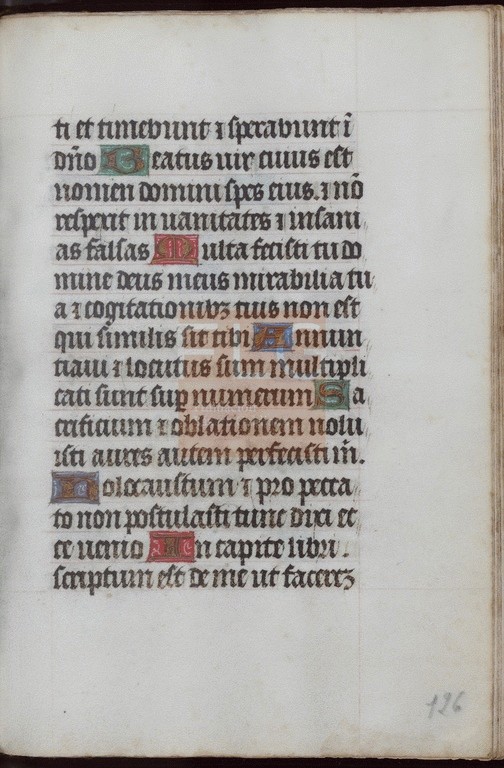 ti et timebunt ⁊ sperabunt ī
dn̄o Beatus uir cuius est
nomen domini spes eius. ⁊ nō
respexit in uanitates ⁊ insani
as falsas Multa fecisti tu do
mine deus meus mirabilia tu
a ⁊ cogitationibꝫ tuis non est
qui similis sit tibi Annun
tiaui ⁊ locutus sum multipli
cati sunt sup̄ numerum Sa
crificium ⁊ oblationem nolu
isti aures autem perfecisti m̄.
Holocaustum ⁊ pro pecca
to non postulasti tunc dixi ec
ce uenio In capite libri.
scriptum est de me ut facereꝫ
126